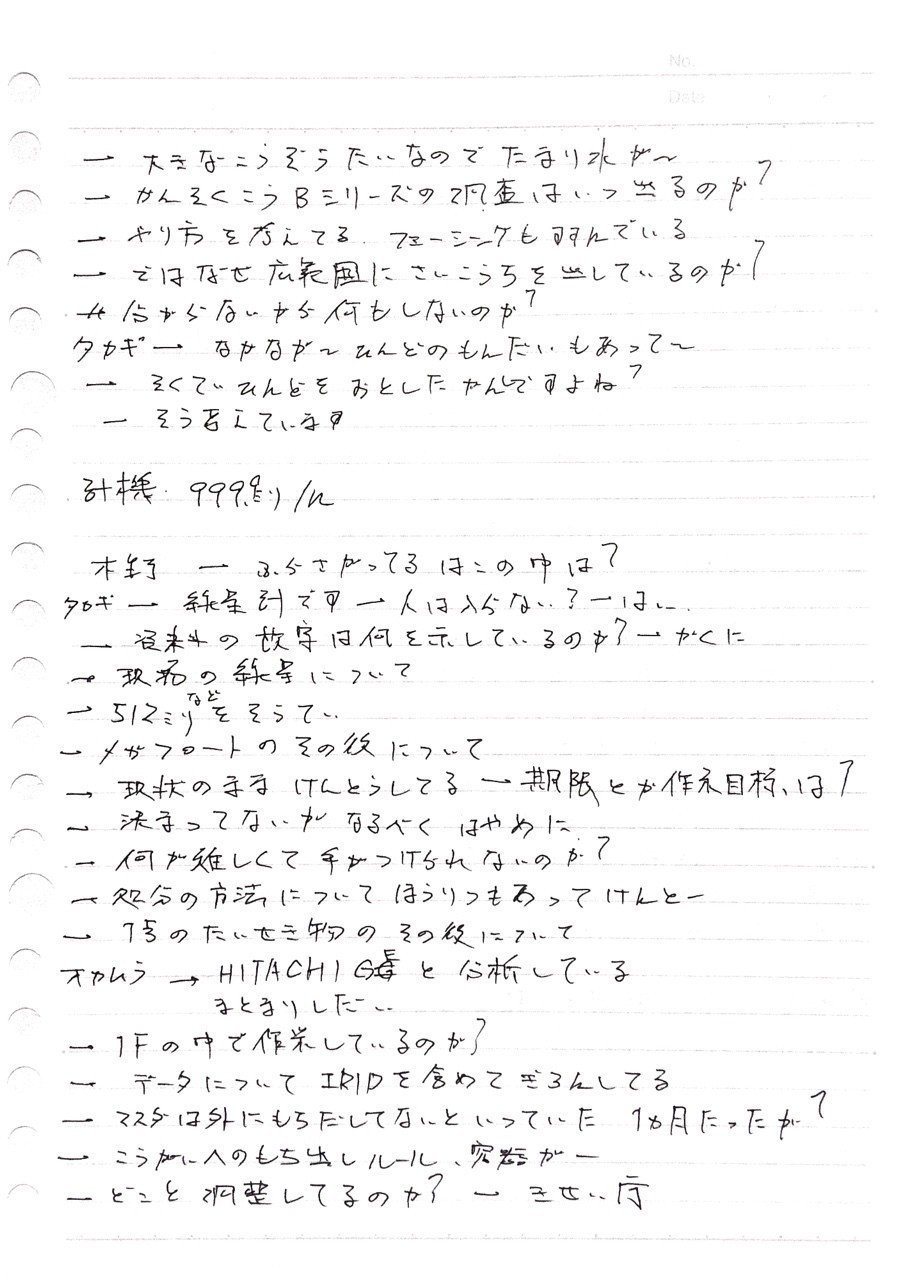 No.
Date
→ 大きなこうぞうたいなので たまり水が〜
→ かんそくこうBシリーズの調査はいつ出るのか?
→ やり方を考えてる. フェーシングもすすんでいる
→ ではなぜ広範囲にさいこうちを出しているのか?
→ 分からないから何もしないのか?
タカギ → なかなか〜 ひんどのもんだいもあって〜
→ そくていひんどをおとしたかんですよね?
→ そう考えています
計機. 999. ミリ/h
木野 → ぶらさがってるはこの中は?
タカギ → 線量計です → 人は入らない? → はい.
→ 資料の数字は何を示しているのか? → かくに
→ 現場の線量について
→ 512ミリなどをそうてい
→ メガフロートのその後について
→ 現状のまま けんとうしてる → 期限とか作業目標は?
→ 決まってないが なるべくはやめに
→ 何が難しくて手がつけられないのか?
→ 処分の方法について ほうりつもあって けんとー
→ 1号のたいせき物のその後について
オカムラ → HITACHI GE と分析している
まとまりしだい
→ 1Fの中で作業しているのか?
→ データについて IRIDを含めてぎろんしてる
→ マスダは外にもちだしてないといっていた 1ヵ月たったが?
→ こうがいへのもち出しルール、容器がー
→ どこと調整してるのか? → きせい庁